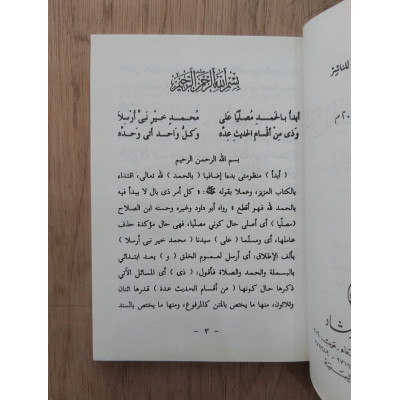 بسم الله الرحمن الرحيم
أبدأ بالحمد مصليا على محمد خير نبى أرسلا
وذى من أقسام الحديث عده وكل واحد أتى وحده
بسم الله الرحمن الرحيم
( أبدأ ) منظومتى بدءا إضافيا ( بالحمد ) لله تعالى، اقتداء
بالكتاب العزيز، وعملا بقوله ﷺ: « كل أمر ذى بال لا يبدأ فيه
بالحمد لله فهو أقطع » رواه أبو داود وغيره وحسنه ابن الصلاح
( مصليا ) أى أصلى حال كونى مصليا، فهى حال مؤكدة حذف
عاملها، أى ومسلما ( على ) سيدنا ( محمد خير نبى أرسلا )
بألف الإطلاق، أى أرسل لعموم الخلق ( و ) بعد ابتدائى
بالبسملة والحمد والصلاة فأقول: ( ذى ) أى المسائل الآتى
ذكرها حال كونها ( من أقسام الحديث عدة ) قدرها اثنان
وثلاثون، منها ما يختص بالمتن كالمرفوع، ومنها ما يختص بالسند
- ٣ -
للناشر